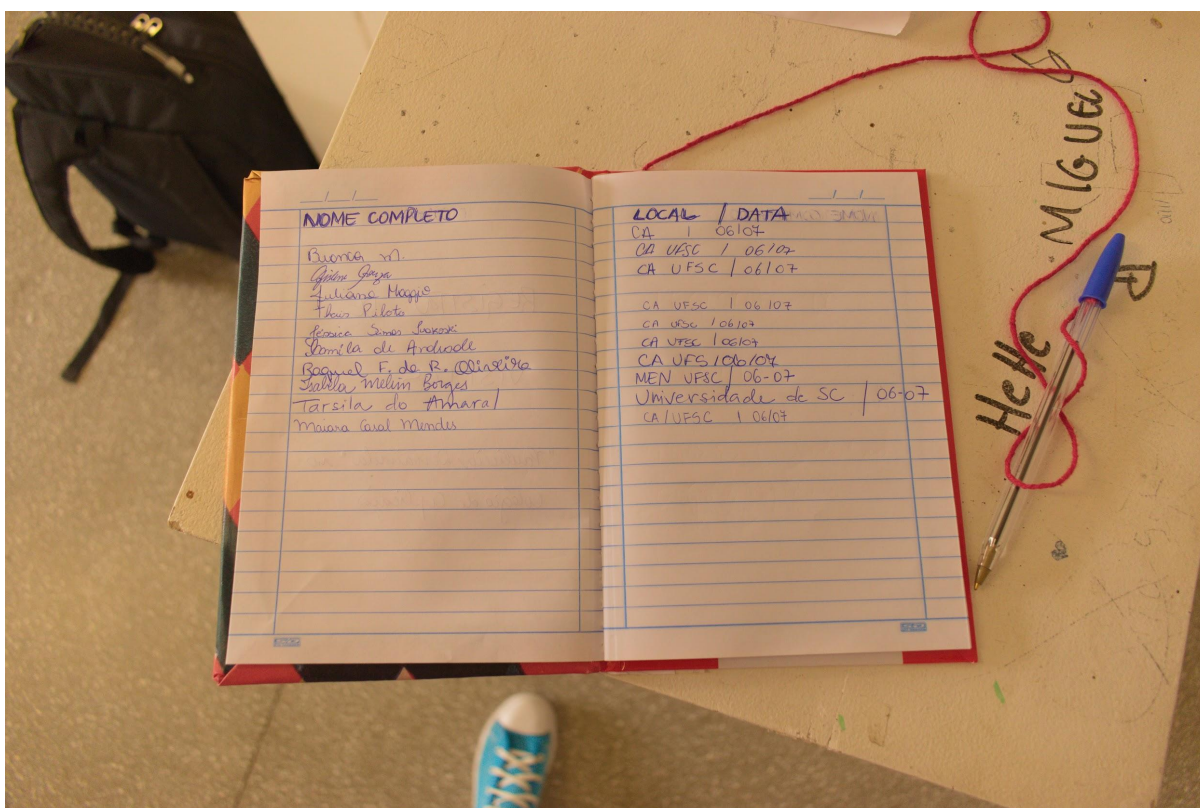 NOME COMPLETO
Bianca M.
Juliana
Thais Piloto
Jéssica
Camila de Andrade
Raquel F. de R. Oliveira
Isabela Melim Borges
Tarsila do Amaral
Maiara Caral Mendes
LOCAL / DATA
CA / 06/07
CA UFSC / 06/07
CA UFSC / 06/07
CA UFSC / 06/07
CA UFSC / 06/07
CA UFSC / 06/07
CA UFS / 06/07
MEN UFSC / 06-07
Universidade de SC / 06-07
CA/UFSC / 06/07
MIGUEL